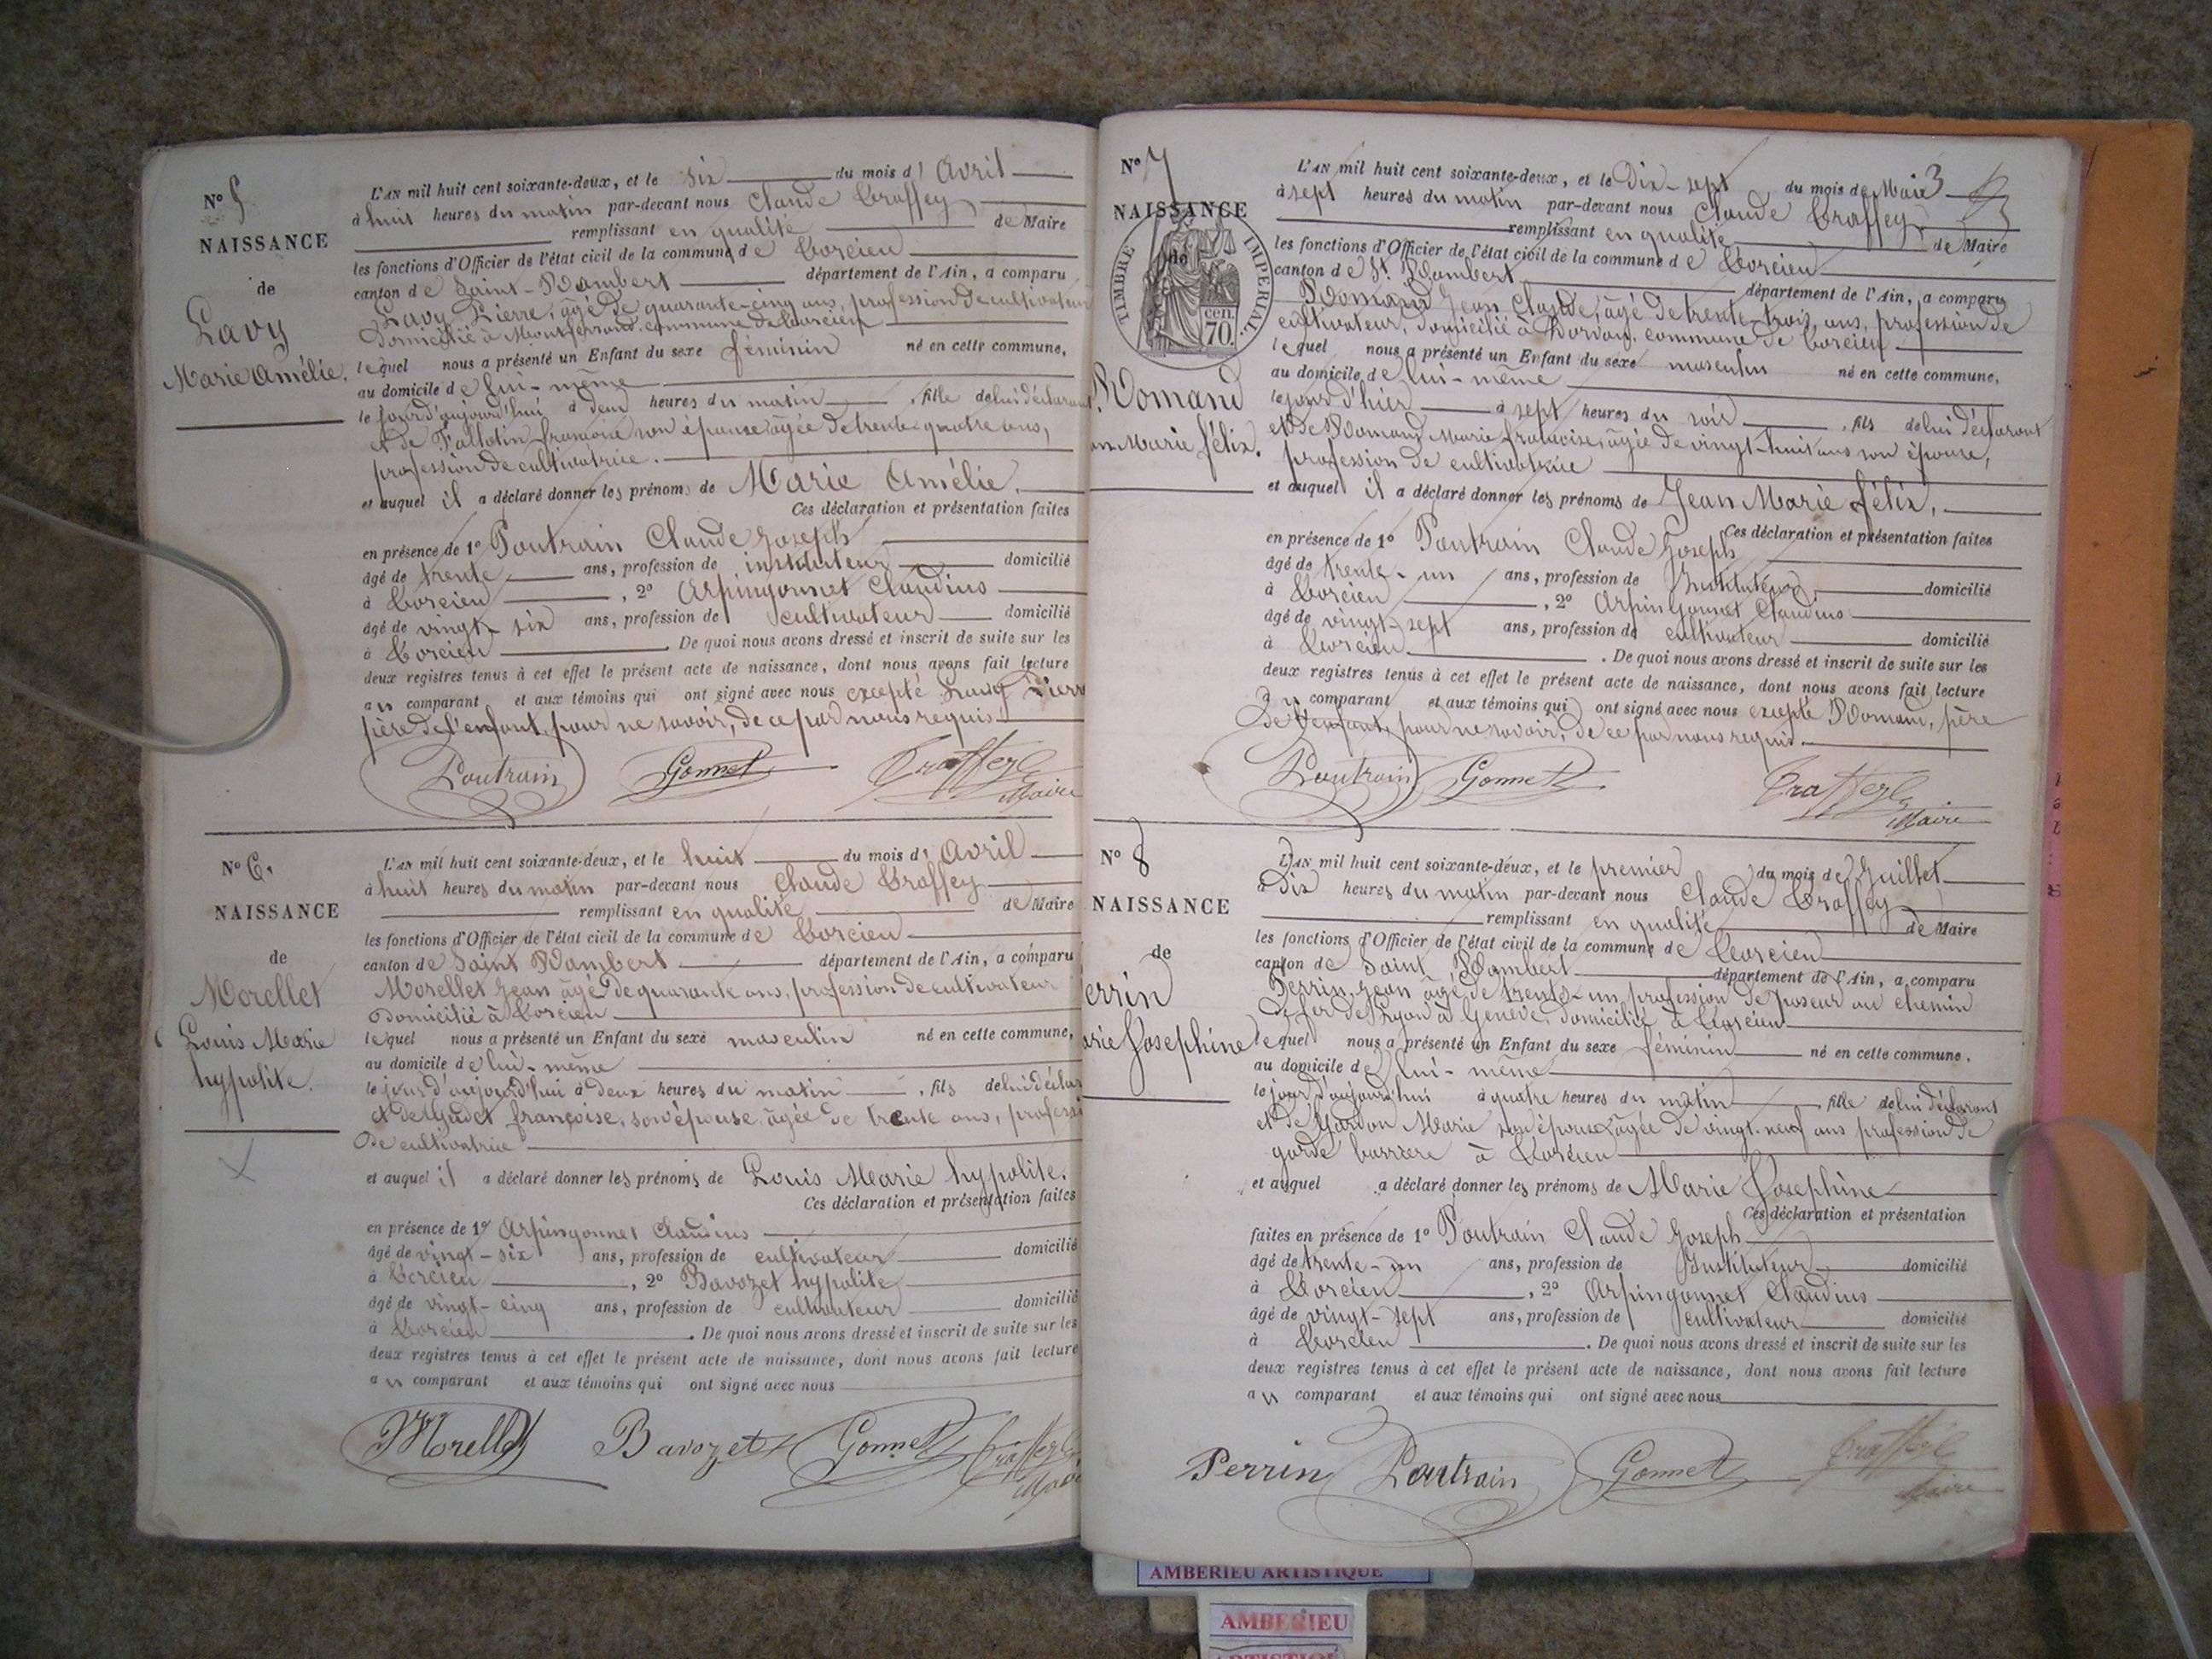 N° 5
NAISSANCE
de
Lavy
Marie Amélie.
L'AN mil huit cent soixante-deux, et le six du mois d'Avril
à huit heures du matin par-devant nous Claude Traffey
remplissant en qualité de Maire
les fonctions d'Officier de l'état civil de la commune de Torcieu
canton de Saint-Rambert département de l'Ain, a comparu
Lavy Pierre, âgé de quarante-cinq ans, profession de cultivateur
domicilié à Montferrand commune de Torcieu
lequel nous a présenté un Enfant du sexe féminin né en cette commune,
au domicile de lui-même
le jour d'aujourd'hui à deux heures du matin, fille de lui déclarant
et de françoise son épouse âgée de trente-quatre ans,
profession de cultivatrice.
et auquel il a déclaré donner les prénoms de Marie Amélie.
Ces déclaration et présentation faites
en présence de 1° Poutrain Claude Joseph
âgé de trente ans, profession de instituteur domicilié
à Torcieu, 2° Arpingonnet Claudius
âgé de vingt-six ans, profession de cultivateur domicilié
à Torcieu. De quoi nous avons dressé et inscrit de suite sur les
deux registres tenus à cet effet le présent acte de naissance, dont nous avons fait lecture
au comparant et aux témoins qui ont signé avec nous excepté Lavy Pierre
père de l'enfant, pour ne savoir, de ce par nous requis.
Poutrain Gonnet Traffey
Maire
N° 6.
NAISSANCE
de
Morellet
Louis Marie
hypolite.
L'AN mil huit cent soixante-deux, et le huit du mois d'Avril
à huit heures du matin par-devant nous Claude Traffey
remplissant en qualité de Maire
les fonctions d'Officier de l'état civil de la commune de Torcieu
canton de Saint Rambert département de l'Ain, a comparu
Morellet Jean âgé de quarante ans, profession de cultivateur
domicilié à Torcieu
lequel nous a présenté un Enfant du sexe masculin né en cette commune,
au domicile de lui-même
le jour d'aujourd'hui à deux heures du matin, fils de lui déclar
et de françoise, son épouse, âgée de trente ans, professi
de cultivatrice
et auquel il a déclaré donner les prénoms de Louis Marie hypolite.
Ces déclaration et présentation faites
en présence de 1° Arpingonnet Claudius
âgé de vingt-six ans, profession de cultivateur domicilié
à Torcieu, 2° Bavozet hypolite
âgé de vingt-cinq ans, profession de cultivateur domicilié
à Torcieu. De quoi nous avons dressé et inscrit de suite sur les
deux registres tenus à cet effet le présent acte de naissance, dont nous avons fait lecture
au comparant et aux témoins qui ont signé avec nous
Morellet Bavozet Gonnet Traffey
Maire
N° 7
NAISSANCE
de
TIMBRE IMPÉRIAL.
cen.
70.
Romand
an Marie félix.
L'AN mil huit cent soixante-deux, et le Dix-sept du mois de Mai 3
à sept heures du matin par-devant nous Claude Traffey
remplissant en qualité de Maire
les fonctions d'Officier de l'état civil de la commune de Torcieu
canton de St. Rambert département de l'Ain, a comparu
Romand Jean Claude, âgé de trente-trois ans, profession de
cultivateur, domicilié à Dorvan, commune de Torcieu
lequel nous a présenté un Enfant du sexe masculin né en cette commune,
au domicile de lui-même
le jour d'hier à sept heures du soir, fils de lui déclarant
et de Romand Marie françoise, âgée de vingt-huit ans son épouse,
profession de cultivatrice
et auquel il a déclaré donner les prénoms de Jean Marie félix,
Ces déclaration et présentation faites
en présence de 1° Poutrain Claude Joseph
âgé de trente-un ans, profession de Instituteur, domicilié
à Torcieu, 2° Arpingonnet Claudius
âgé de vingt-sept ans, profession de cultivateur domicilié
à Torcieu. De quoi nous avons dressé et inscrit de suite sur les
deux registres tenus à cet effet le présent acte de naissance, dont nous avons fait lecture
au comparant et aux témoins qui ont signé avec nous excepté Romand, père
de l'enfant, pour ne savoir, de ce par nous requis.
Poutrain Gonnet Traffey
Maire
N° 8
NAISSANCE
de
errin
arie Josephine
L'AN mil huit cent soixante-deux, et le premier du mois de Juillet
à Dix heures du matin par-devant nous Claude Traffey
remplissant en qualité de Maire
les fonctions d'Officier de l'état civil de la commune de Torcieu
canton de Saint Rambert département de l'Ain, a comparu
Perrin Jean âgé de trente-un profession de poseur au chemin
de fer de Lyon à Genève, domicilié à Torcieu
lequel nous a présenté un Enfant du sexe féminin né en cette commune.
au domicile de lui-même
le jour d'aujourd'hui à quatre heures du matin fille de lui déclarant
et de Marie son épouse âgée de vingt-neuf ans profession de
garde barrière à Torcieu
et auquel a déclaré donner les prénoms de Marie Josephine
Ces déclaration et présentation
faites en présence de 1° Poutrain Claude Joseph
âgé de trente-un ans, profession de Instituteur domicilié
à Torcieu, 2° Arpingonnet Claudius
âgé de vingt-sept ans, profession de cultivateur domicilié
à Torcieu. De quoi nous avons dressé et inscrit de suite sur les
deux registres tenus à cet effet le présent acte de naissance, dont nous avons fait lecture
au comparant et aux témoins qui ont signé avec nous
Perrin Poutrain Gonnet Traffey
Maire
AMBERIEU ARTISTIQUE
AMBERIEU
ARTISTIQUE